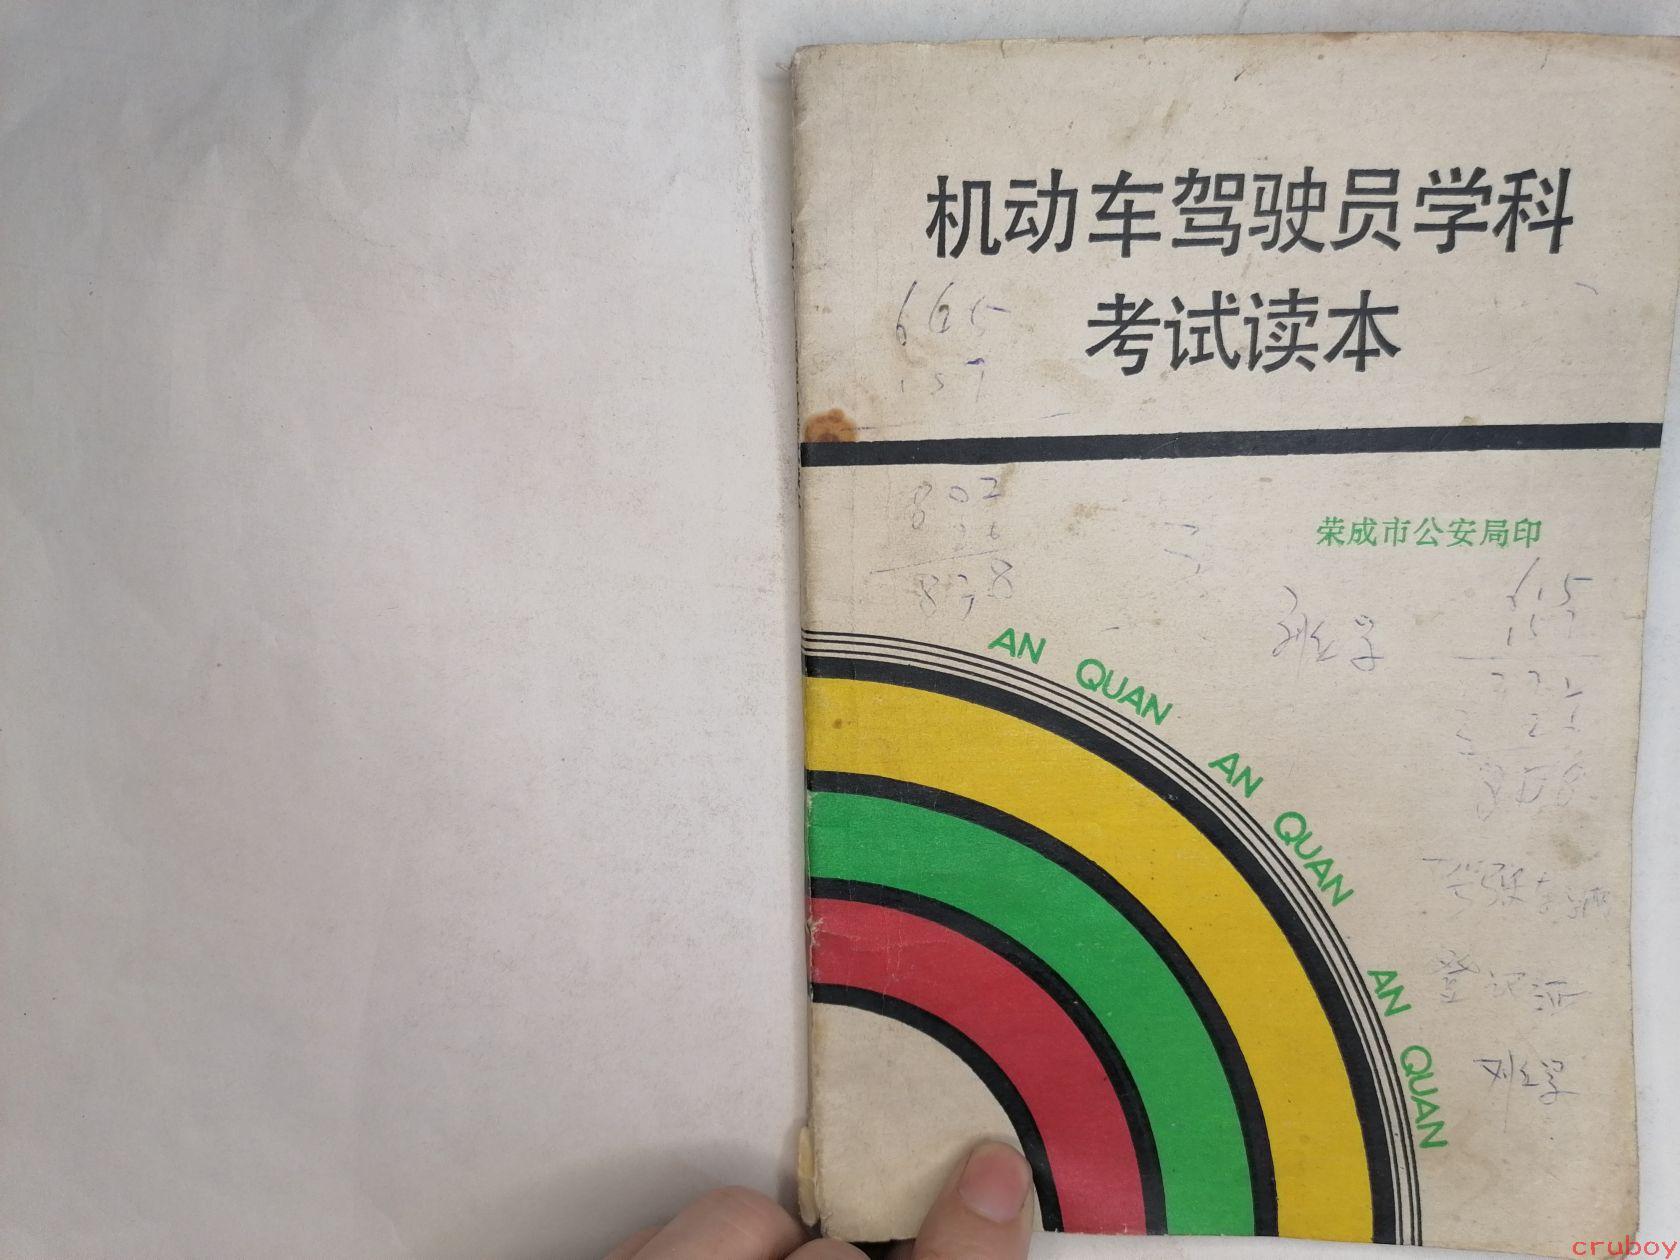 机动车驾驶员学科
考试读本
665
157
802
荣成市公安局印
615
898
AN QUAN AN QUAN AN QUAN
登记证
cruboy